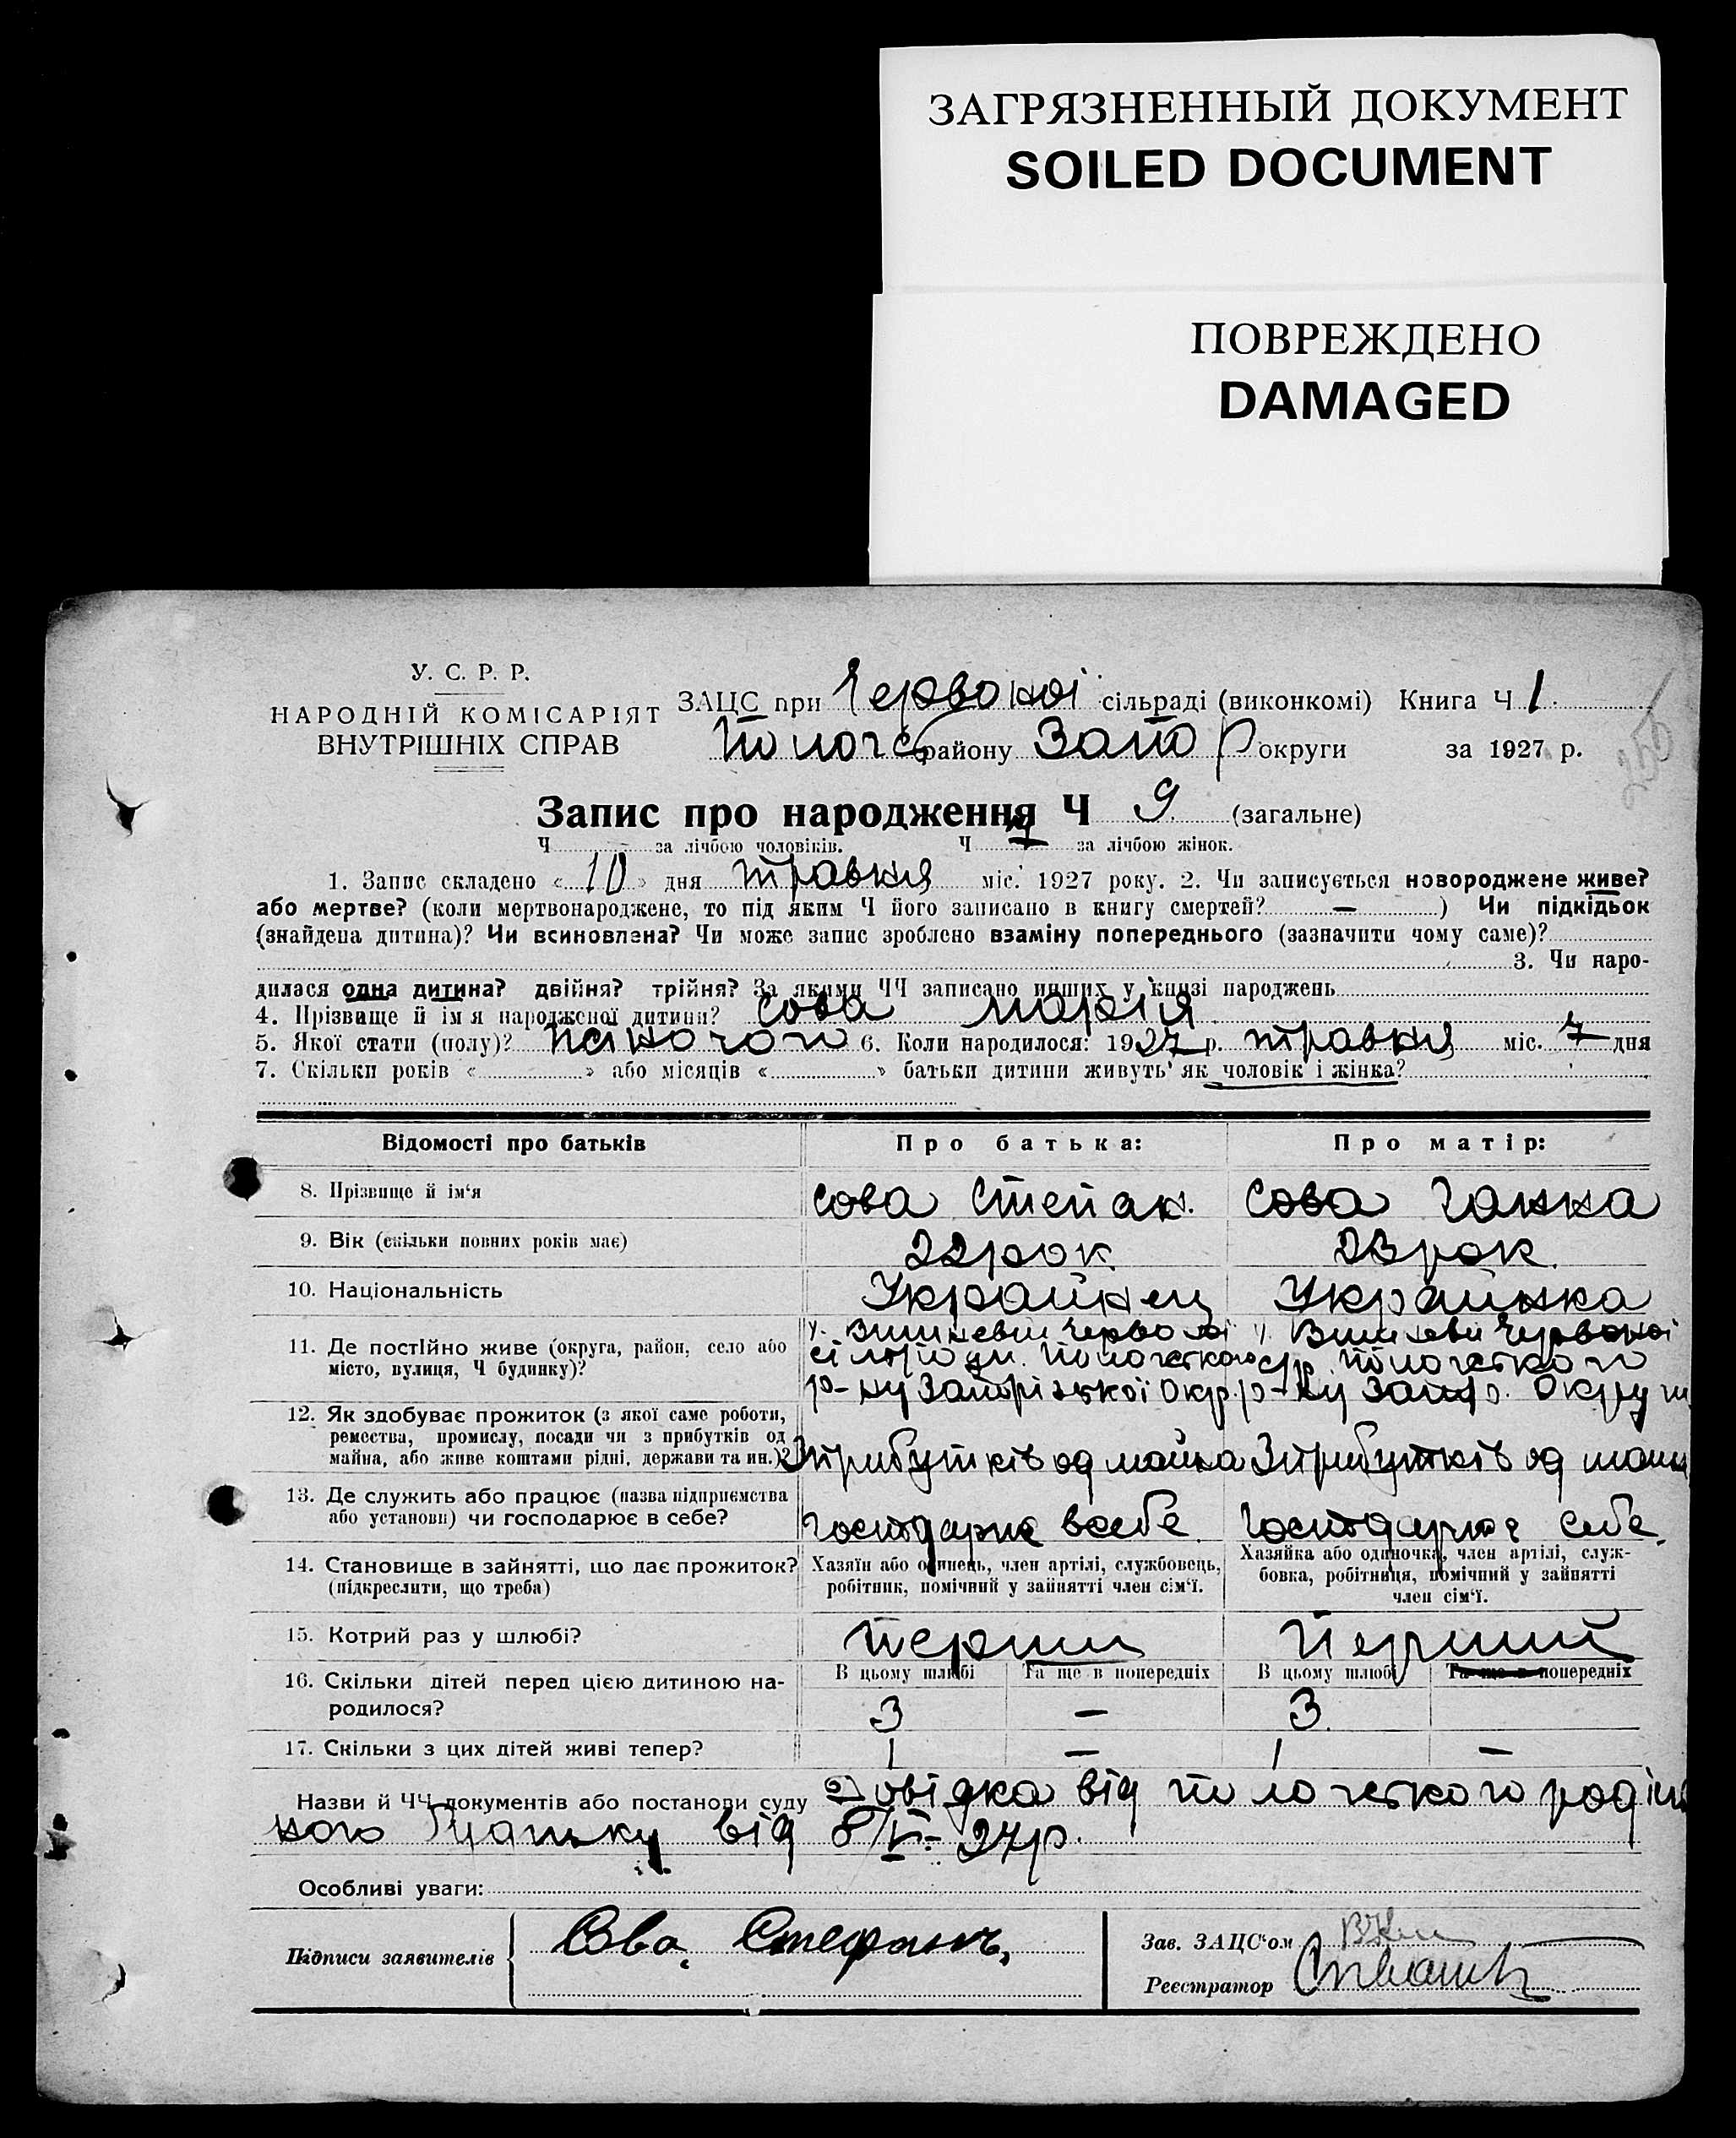 ЗАГРЯЗНЕННЫЙ ДОКУМЕНТ
SOILED DOCUMENT
ПОВРЕЖДЕНО
DAMAGED
У. С. Р. Р.
НАРОДНІЙ КОМІСАРІЯТ
ВНУТРІШНІХ СПРАВ
ЗАЦС при Червоної сільраді (виконкомі) Книга Ч 1
Пологс району Запор округи за 1927 р.
Запис про народження Ч 9 (загальне)
Ч за лічбою чоловіків. Ч за лічбою жінок.
1. Запис складено « 10 » дня травня міс. 1927 року. 2. Чи записується новороджене живе?
або мертве? (коли мертвонароджене, то під яким Ч його записано в книгу смертей? — ) Чи підкідьок
(знайдена дитина)? Чи всиновлена? Чи може запис зроблено взаміну попереднього (зазначити чому саме)?
3. Чи наро-
дилася одна дитина? двійня? трійня? За якими ЧЧ записано инших у книзі народжень
4. Прізвище й ім'я народженої дитини? Сова Марія
5. Якої стати (полу)? жіночого 6. Коли народилося: 1927 р. травня міс. 7 дня
7. Скільки років « » або місяців « » батьки дитини живуть як чоловік і жінка?
Відомості про батьків Про батька: Про матір:
8. Прізвище й ім'я Сова Степан. Сова Ганна
9. Вік (скільки повних років має) 22 рок 23 рок.
10. Національність Українец Українка
11. Де постійно живе (округа, район, село або
місто, вулиця, Ч будинку)?
Червоної
Пологського Пологського
р-ну Запорізької Окр. р-ну Запор. Округи
12. Як здобуває прожиток (з якої саме роботи,
ремества, промислу, посади чи з прибутків од
майна, або живе коштами рідні, держави та ин.)?
З прибутків од майна З прибутків од майн
13. Де служить або працює (назва підприємства
або установи) чи господарює в себе?
господарює в себе господарює себе.
14. Становище в зайнятті, що дає прожиток?
(підкреслити, що треба)
Хазяїн або одинець, член артілі, службовець,
робітник, помічний у зайнятті член сім'ї.
Хазяйка або одиночка, член артілі, служ-
бовка, робітниця, помічний у зайнятті
член сім'ї.
15. Котрий раз у шлюбі? перший Перший
16. Скільки дітей перед цією дитиною на-
родилося?
В цьому шлюбі Та ще в попередніх В цьому шлюбі Та ще в попередніх
3 — 3
17. Скільки з цих дітей живі тепер? 1 — 1 —
Назви й ЧЧ документів або постанови суду Довідка від Пологського родін
ного від 8/V- 27р.
Особливі уваги:
Підписи заявителів Сова Стефанъ
Зав. ЗАЦС'ом
Реєстратор